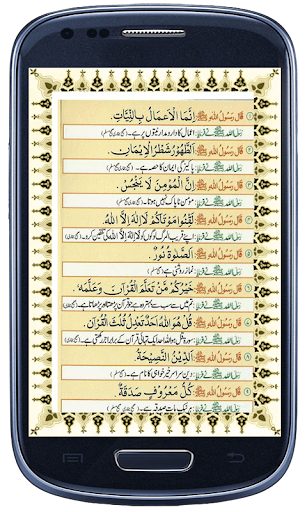 قَالَ رَسُوْلُ اللهِ ﷺ: إِنَّمَا الْاَعْمَالُ بِالنِّيَّاتِ.
رسول اللہ ﷺ نے فرمایا: اعمال کا دارومدار نیتوں پر ہے۔
قَالَ رَسُوْلُ اللهِ ﷺ: اَلطُّهُوْرُ شَطْرُ الْاِيْمَانِ.
رسول اللہ ﷺ نے فرمایا: پاکیزگی ایمان کا حصہ ہے۔ (صحیح مسلم)
قَالَ رَسُوْلُ اللهِ ﷺ: اِنَّ الْمُؤْمِنَ لَا يَنْجُسُ.
رسول اللہ ﷺ نے فرمایا: مؤمن ناپاک نہیں ہوتا۔
قَالَ رَسُوْلُ اللهِ ﷺ: لَقِّنُوْا مَوْتَاكُمْ لَا اِلٰهَ اِلَّا اللهُ.
رسول اللہ ﷺ نے فرمایا: اپنے قریب المرگ لوگوں کو لا الہ الا اللہ کی تلقین کرو۔
قَالَ رَسُوْلُ اللهِ ﷺ: اَلصَّلٰوةُ نُوْرٌ.
رسول اللہ ﷺ نے فرمایا: نماز روشنی ہے (صحیح مسلم)
قَالَ رَسُوْلُ اللهِ ﷺ: خَيْرُكُمْ مَنْ تَعَلَّمَ الْقُرْاٰنَ وَعَلَّمَهٗ.
رسول اللہ ﷺ نے فرمایا: تم میں سب سے بہتر وہ ہے جو قرآن پڑھتا اور پڑھاتا ہے۔
قَالَ رَسُوْلُ اللهِ ﷺ: قُلْ هُوَ اللهُ اَحَدٌ تَعْدِلُ ثُلُثَ الْقُرْاٰنِ.
رسول اللہ ﷺ نے فرمایا: سورۃ قل ہو اللہ احد ایک تہائی قرآن کے برابر
قَالَ رَسُوْلُ اللهِ ﷺ: اَلدِّيْنُ النَّصِيْحَةُ.
رسول اللہ ﷺ نے فرمایا: دین سراسر خیر خواہی کا نام ہے۔ (صحیح مسلم)
قَالَ رَسُوْلُ اللهِ ﷺ: كُلُّ مَعْرُوْفٍ صَدَقَةٌ.
رسول اللہ ﷺ نے فرمایا: ہر نیک بات صدقہ ہے۔